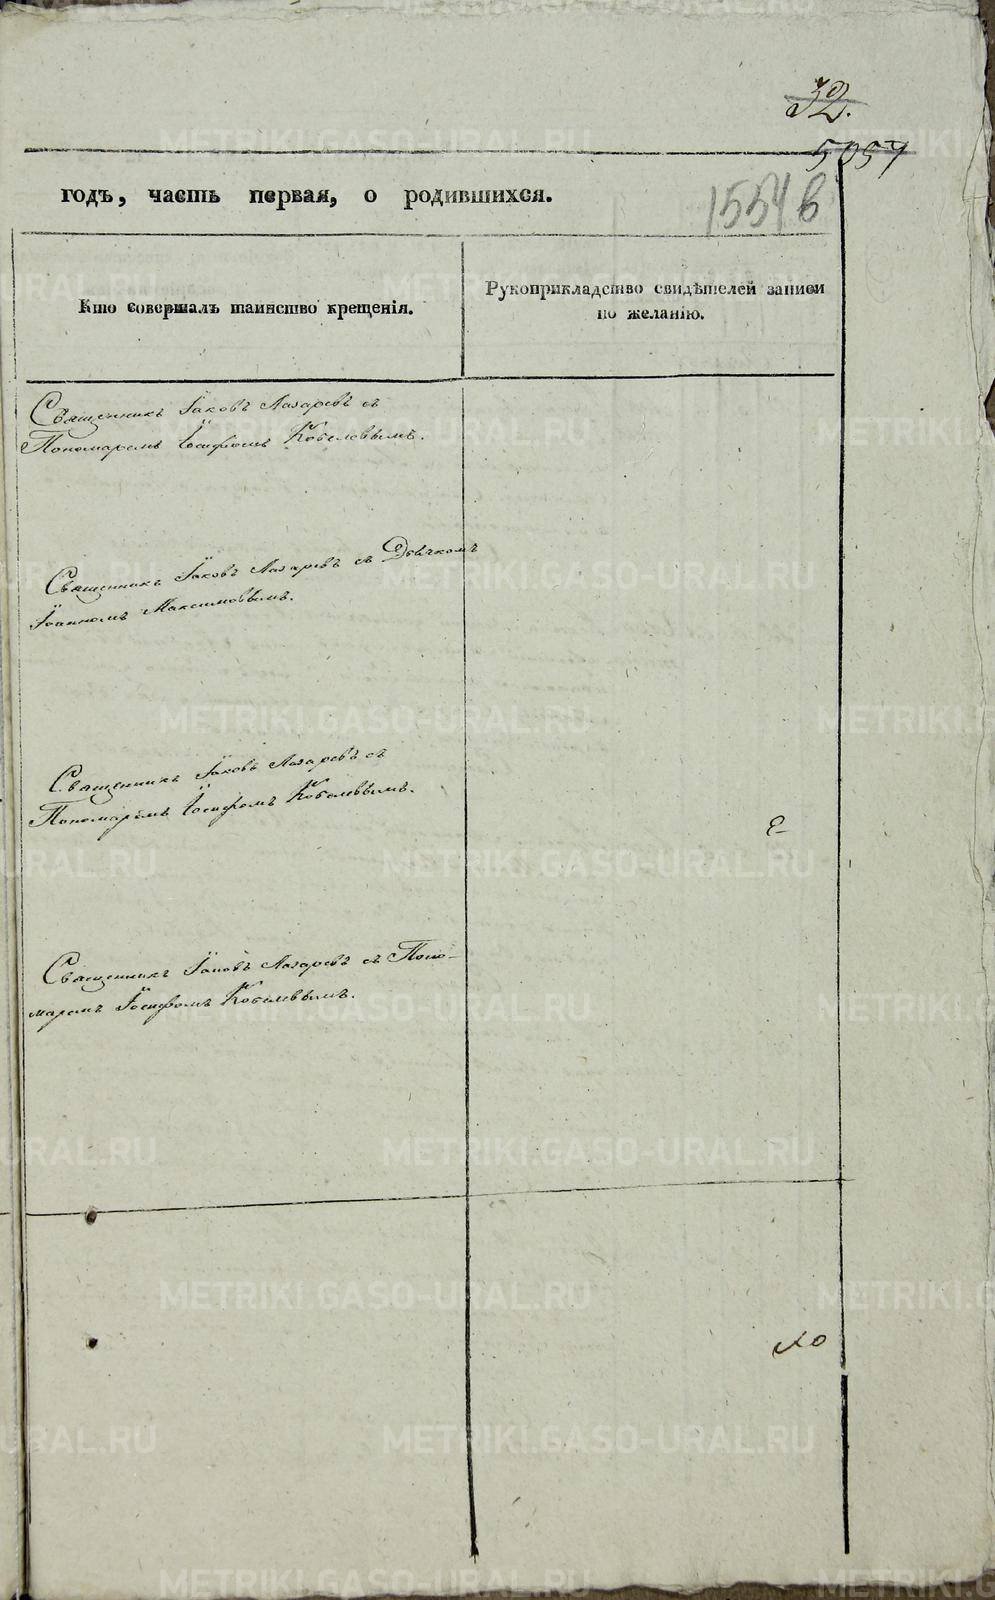 32.
5057
1554 в
годъ, часть первая, о родившихся.
Кто совершалъ таинство крещенія.
Рукоприкладство свидѣтелей записи
по желанію.
Священникъ Іаковъ Лазаревъ съ
Пономаремъ Іосифомъ Кобелевымъ.
Священникъ Іаковъ Лазаревъ съ Дьячкомъ
Іоанномъ Максимовымъ.
Священникъ Іаковъ Лазаревъ съ
Пономаремъ Іосифомъ Кобелевымъ.
Священникъ Іаковъ Лазаревъ съ Поно-
маремъ Іосифомъ Кобелевымъ.
METRIKI.GASO-URAL.RU